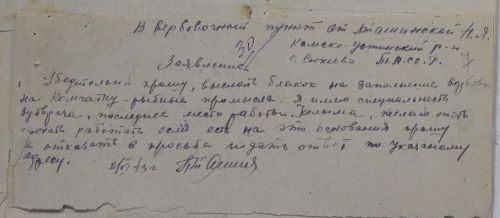 В вербовочный пункт от Пташинской Н.Я.
Камско-Устинский р-н
30
Заявление с. Сюкеево Т.А.ссР.
Убедительно прошу, выслать бланок на заполнение вербовки
на Камчатку - рыбные промысла. Я имею специальность
зубврача, последнее место работы Колыма, желаю опять
поехать работать если есть на это основания прошу
не отказать в просьбе и дать ответ по указаному
адресу.